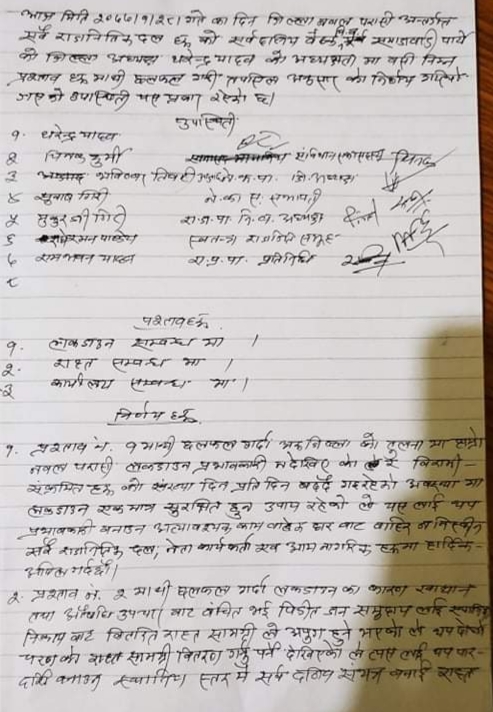 आज मिति २०७७/१/२८ गते का दिन जिल्ला नवल परासी अन्तर्गत
सर्व राजनितिक दल हरु को सर्वदलिय बैठक समाजवादी पार्टी
का जिल्ला अध्यक्ष धरेन्द्र यादव को अध्यक्षता मा बसी निम्न
प्रस्ताव हरु माथी छलफल गरी तपसिल अनुसार को निर्णय गरियो
उपस्थिती यस प्रकार रहेको छ।
उपस्थिती
१. धरेन्द्र यादव
२ कुर्मी
३ त्रिपाठी ने.क.पा. जि. अध्यक्ष
४ गिरी ने.का स. सभापती
५ गिरी रा.ज.पा. नि.व. अध्यक्ष
६ पाण्डेय स्वतन्त्र राजनिति समूह
७ यादव रा.प्र.पा. प्रतिनिधि
८
प्रस्तावहरु
१. लकडाउन सम्बन्ध मा ।
२. राहत सम्बन्ध मा ।
३ कार्यालय सम्बन्ध मा ।
निर्णय हरु
१. प्रस्ताव नं. १ माथी छलफल गर्दा अरु जिल्ला को तुलना मा हाम्रो
नवल परासी लकडाउन प्रभावकारी नदेखिएको र बिरामी
संक्रमित हरु को संख्या दिन प्रति दिन बढ्दै गइरहेको अवस्था मा
लकडाउन एक मात्र सुरक्षित हुन उपाय रहेको ले यस लाई थप
प्रभावकारी बनाउन अत्यावश्यक काम बाहेक घर बाट बाहिर ननिस्कन
सर्व राजनितिक दल, नेता कार्यकर्ता एवं आम नागरिक हरु मा हार्दिक
अपिल गर्दछौं।
२. प्रस्ताव नं. २ माथी छलफल गर्दा लकडाउन का कारण खाद्यान्न
तथा औषधि उपचार बाट वंचित भई पिडीत जन समुदाय लाई स्थानिय
निकाय बाट वितरित राहत सामग्री ले अपुग हुने भएको ले थप दोश्रो
चरण को राहत सामग्री वितरण गर्नु पर्ने देखिएको ले त्यस लाई थप पार-
दर्शि बनाउन स्थानिय स्तर मै सर्व दलिय संयन्त्र बनाई राहत